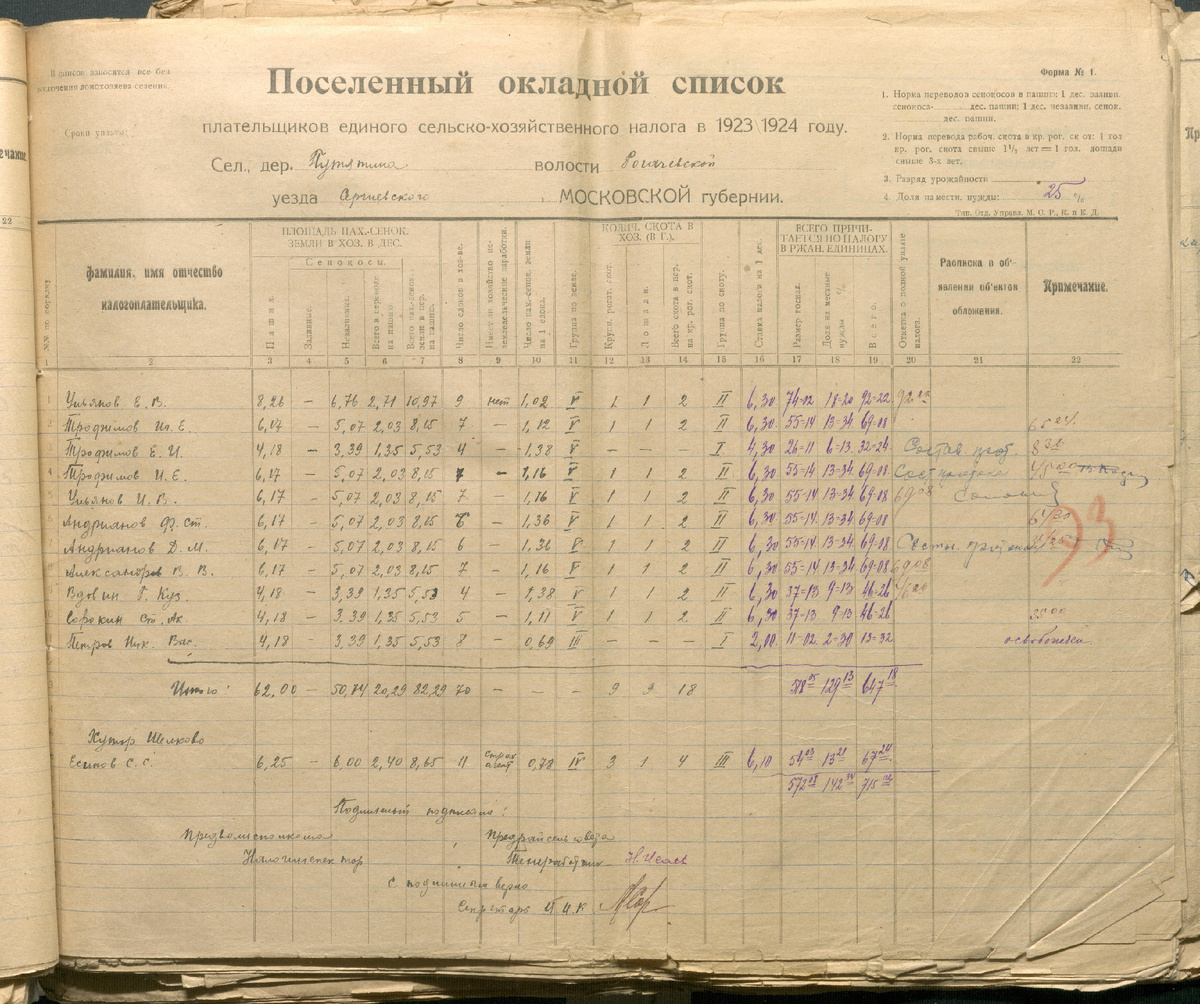 В список вносятся все без
исключения домохозяева селения.
Сроки уплаты:
Поселенный окладной список
плательщиков единого сельско-хозяйственного налога в 1923\1924 году.
Сел., дер. Путятина волости Рогачевской
уезда Сергиевского МОСКОВСКОЙ губернии.
Форма № 1.
1. Норма переводов сенокосов в пашни: 1 дес. заливн.
сенокоса- дес. пашни; 1 дес. незаливн. сенок.
дес. пашни.
2. Норма перевода рабоч. скота в кр. рог. ск от: 1 гол
кр. рог. скота свыше 1½ лет = 1 гол. лошади
свыше 3-х лет.
3. Разряд урожайности
4. Доля на местн. нужды: 25 %
Тип. Отд. Управл. М. С. Р., К. и К. Д.
№№ по порядку
фамилия, имя отчество
налогоплательщика.
ПЛОЩАДЬ ПАХ.-СЕНОК.
ЗЕМЛИ В ХОЗ. В ДЕС.
Сенокосы.
Пашня.
Заливные.
Незаливных.
Всего в переводе
на пашню.
Всего пах-сенок
земли в пер.
на пашню.
Число едоков в хоз-ве.
Число пах.-сенок. земли
на 1 едока.
Группа по земле.
КОЛИЧ. СКОТА В
ХОЗ. (В Г.).
Крупн. рогат. скот.
Лошади.
Всего скота в пер.
на кр. рог. скот.
Группа по скоту.
Ставка налога на 1 дес.
ВСЕГО ПРИЧИ-
ТАЕТСЯ ПО НАЛОГУ
В РЖАН. ЕДИНИЦАХ.
Размер госнал.
Доля на местные
нужды %
Всего.
Отметка о полной уплате
налога.
Расписка в об'-
явлении об'ектов
обложения.
Примечание.
1 2 3 4 5 6 7 8 9 10 11 12 13 14 15 16 17 18 19 20 21 22
1 Ульянов Е. В. 8,26 — 6,76 2,71 10,97 9 нет 1,02 V 1 1 2 II 6,30 74-02 18-20 92-22
2 Трофимов Ив. Е. 6,17 — 5,07 2,03 8,15 7 — 1,12 V 1 1 2 II 6,30 55-14 13-34 69-08
3 Трофимов Е. И. 4,18 — 3,39 1,35 5,53 4 — 1,38 V — — — I 4,30 26-11 6-13 32-24
4 Трофимов И. Е. 6,17 — 5,07 2,03 8,15 7 — 1,16 V 1 1 2 II 6,30 55-14 13-34 69-08
5 Ульянов И. В. 6,17 — 5,07 2,03 8,15 7 — 1,16 V 1 1 2 II 6,30 55-14 13-34 69-08 6908
6 Андрианов Ф. Ст. 6,17 — 5,07 2,03 8,15 6 — 1,36 V 1 1 2 II 6,30 55-14 13-34 69-08
7 Андрианов Д. М. 6,17 — 5,07 2,03 8,15 6 — 1,36 V 1 1 2 II 6,30 55-14 13-34 69-08
8 Александров В. В. 6,17 — 5,07 2,03 8,15 7 — 1,16 V 1 1 2 II 6,30 55-14 13-34 69-08 6908
9 Вдовин Г. Куз. 4,18 — 3,39 1,35 5,53 4 — 1,38 V 1 1 2 II 6,30 37-13 9-13 46-26
Сорокин Ст. Ак. 4,18 — 3,39 1,35 5,53 5 — 1,11 V 1 1 2 II 6,30 37-13 9-13 46-26
Петров Ник. Вас. 4,18 — 3,39 1,35 5,53 8 — 0,69 III — — — I 2,00 11-02 2-30 13-32 освобожден
93
Итого: 62,00 — 50,74 20,29 82,29 70 — — — 9 9 18 129 13 647 18
Хутор Шелково
Есипов С. С. 6,25 — 6,00 2,40 8,65 11 страх агент 0,78 IV 3 1 4 III 6,10 54 03 13 21 67 24
Подлинный подписали:
Предволисполкома Предрайсельсовета
Налогинспектор Техработник
С подлинным верно
Секретарь